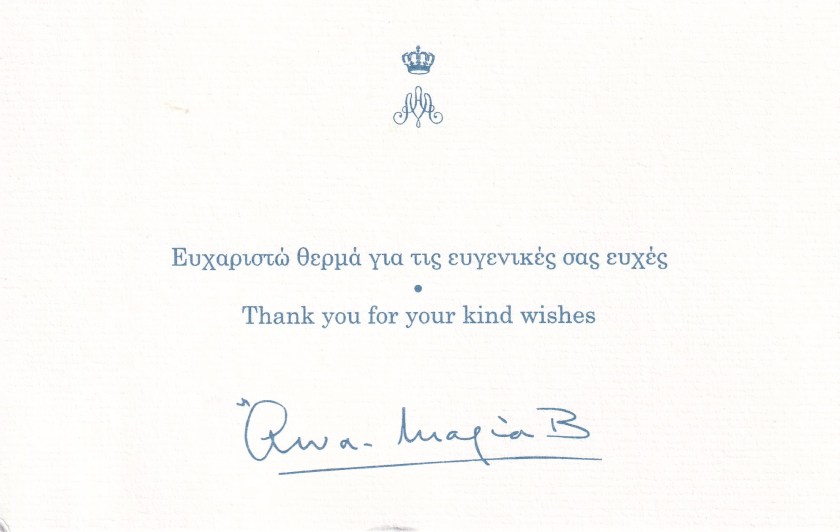 Ευχαριστώ θερμά για τις ευγενικές σας ευχές
•
Thank you for your kind wishes
Ἄννα-Μαρία Β